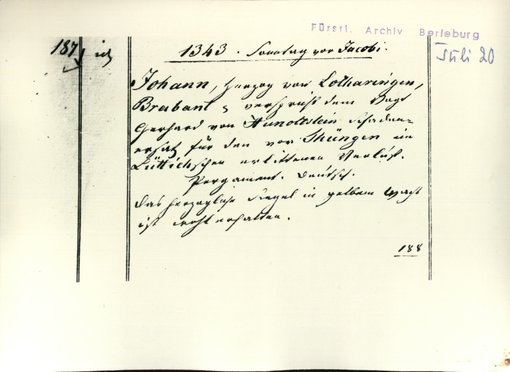 Fürstl. Archiv Berleburg
187
1343. Sonntag vor Jacobi.
Juli 20
Johann, Herzog von Lotharingen,
Brabant, verspricht dem Vogt
Gerhard von
ersatz für den vor Thüngen im
Lüttichschen erlittenen Verlust.
Pergament. Deutsch.
Das herzogliche Siegel in gelbem Wachs
ist wohl erhalten.
188